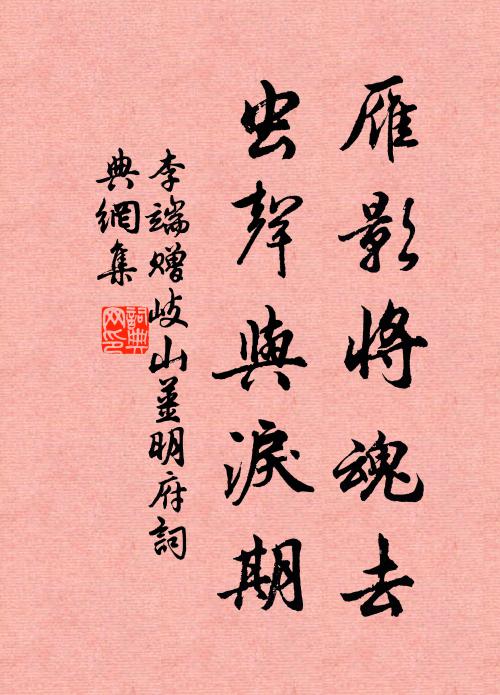 雁影将魂去
虫聲與淚期
李端赠岐山姜明府詞
典網集
詞典
网印